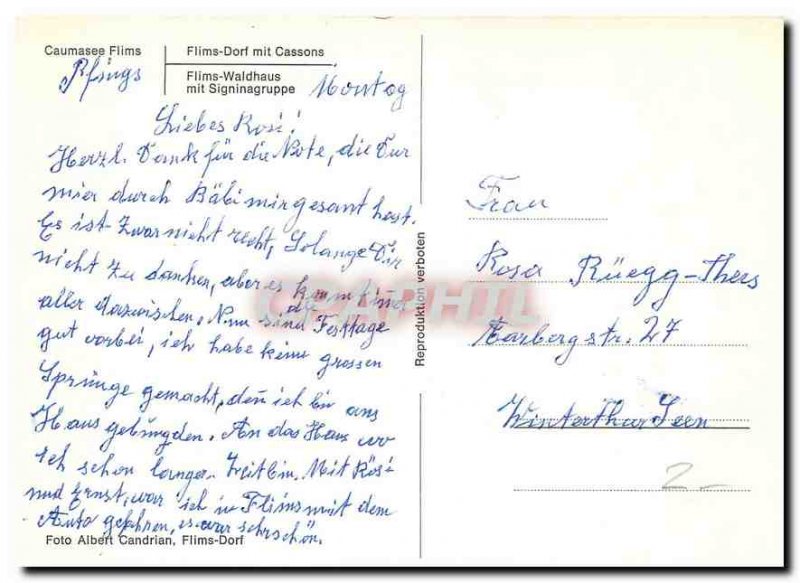 Caumasee Flims
Flims-Dorf mit Cassons
Flims-Waldhaus
mit Signinagruppe
Pfings Montag
Liebes Rosi!
Herzl. Dank für die Note, die Dur
mir durch Bäbi mir gesant hast.
Es ist zwar nicht recht, Solange Dir
nicht zu danken, aber es kom
aller dazwischen. Nun sind die Festtage
gut vorbei, ich habe keine grossen
Sprünge gemacht, den ich bin ans
Haus gebungden. An das Haus wo
ich schon langer Zeit bin. Mit Rösi
und Ernst, war ich in Flims mit dem
Auto gefahren, es war sehr schön.
Foto Albert Candrian, Flims-Dorf
Reproduktion verboten
CPAPHIL
Frau
Rosa Rüegg-
Aarbergstr. 27
Winterthur Seen
2.-